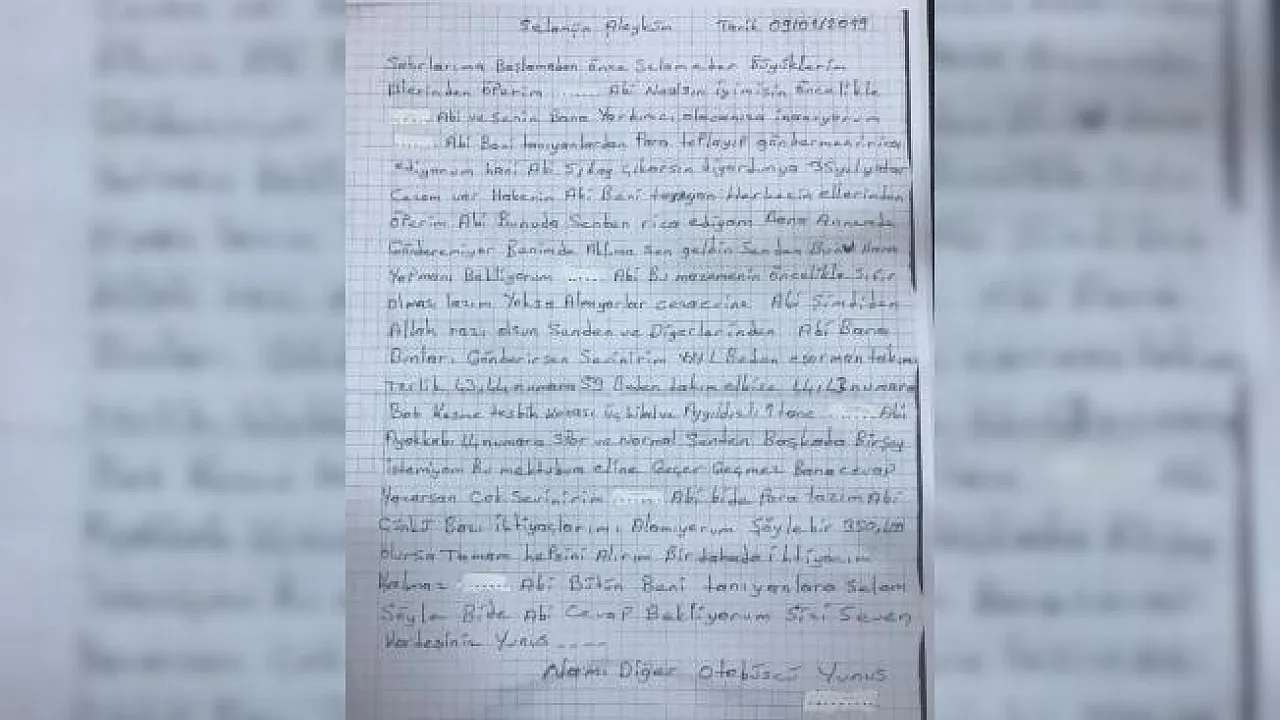 Selamün Aleyküm Tarih 09/01/2019
Satırlarıma Başlamadan önce Selameder Büyüklerim
Ellerinden öperim ..... Abi Nasılsın iyimisin öncelikle
Abi ve Senin Bana Yardımcı olacanıza inanıyorum
Abi Beni tanıyanlardan Para toplayıp göndermeni rica
ediyorum hani Abi diyordunya 35yılyatar
Cezam var Haberin Abi Beni tanıyan Herkezin ellerinden
öperim Abi Bunuda Senden rica ediyom Bana Annemde
Gönderemiyor Benimde Aklıma Sen geldin Senden Bunu Bana
Yapmanı Bekliyorum ..... Abi Bu malzemenin öncelikle Sıfır
olması lazım Yoksa Almıyorlar cezaevine Abi Şimdiden
Allah razı olsun Senden ve Diğerlerinden Abi Bana
Bunları Gönderirsen Sevinirim Beden eşorman takımı
terlik 43,44 numara 59 Beden takım elbise numara
Bot Kesme tesbih tane Abi
Ayakkabı 44 numara Spor ve Normal Senden Başkada Birşey
istemiyom Bu mektubum eline Geçer Geçmez Bana cevap
Yazarsan Çok Sevinirim Abi bide Para lazım Abi
Çünkü Bazı ihtiyaçlarımı Alamıyorum Şöyle bir 350,400
olursa Tamam hepsini Alırım Bir dahada ihtiyacım
Kalmaz Abi Bütün Beni tanıyanlara Selam
Söyle Bide Abi Cevap Bekliyorum Sizi Seven
Kardeşiniz Yunus ....
Nami Diğer Otobüscü Yunus